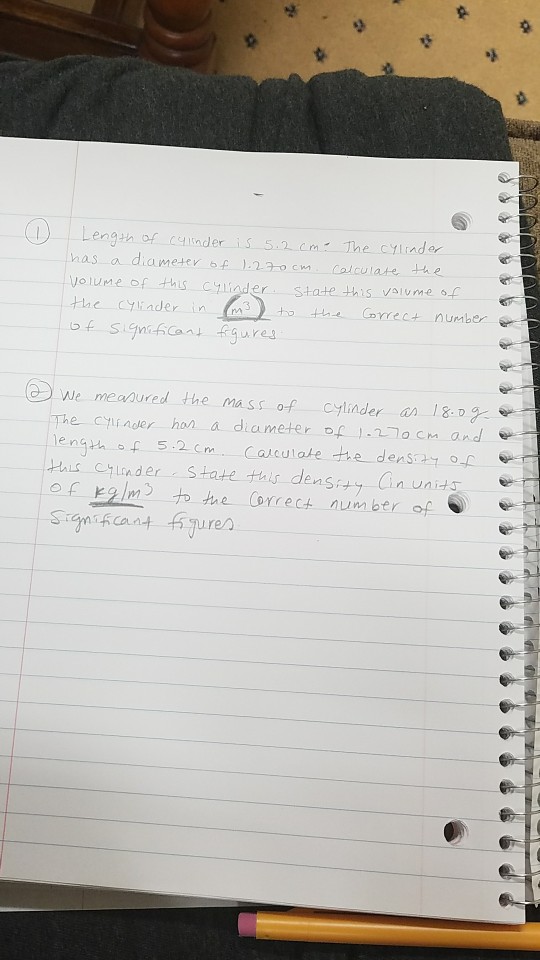 ① Length of cylinder is 5.2 cm. The cylinder
has a diameter of 1.270 cm. Calculate the
volume of this cylinder. State this volume of
the cylinder in (m³) to the correct number
of significant figures.
② We measured the mass of cylinder as 18.0g
The cylinder has a diameter of 1.270cm and
length of 5.2cm. Calculate the density of
this cylinder. State this density (in units
of kg/m³ to the correct number of
significant figures.